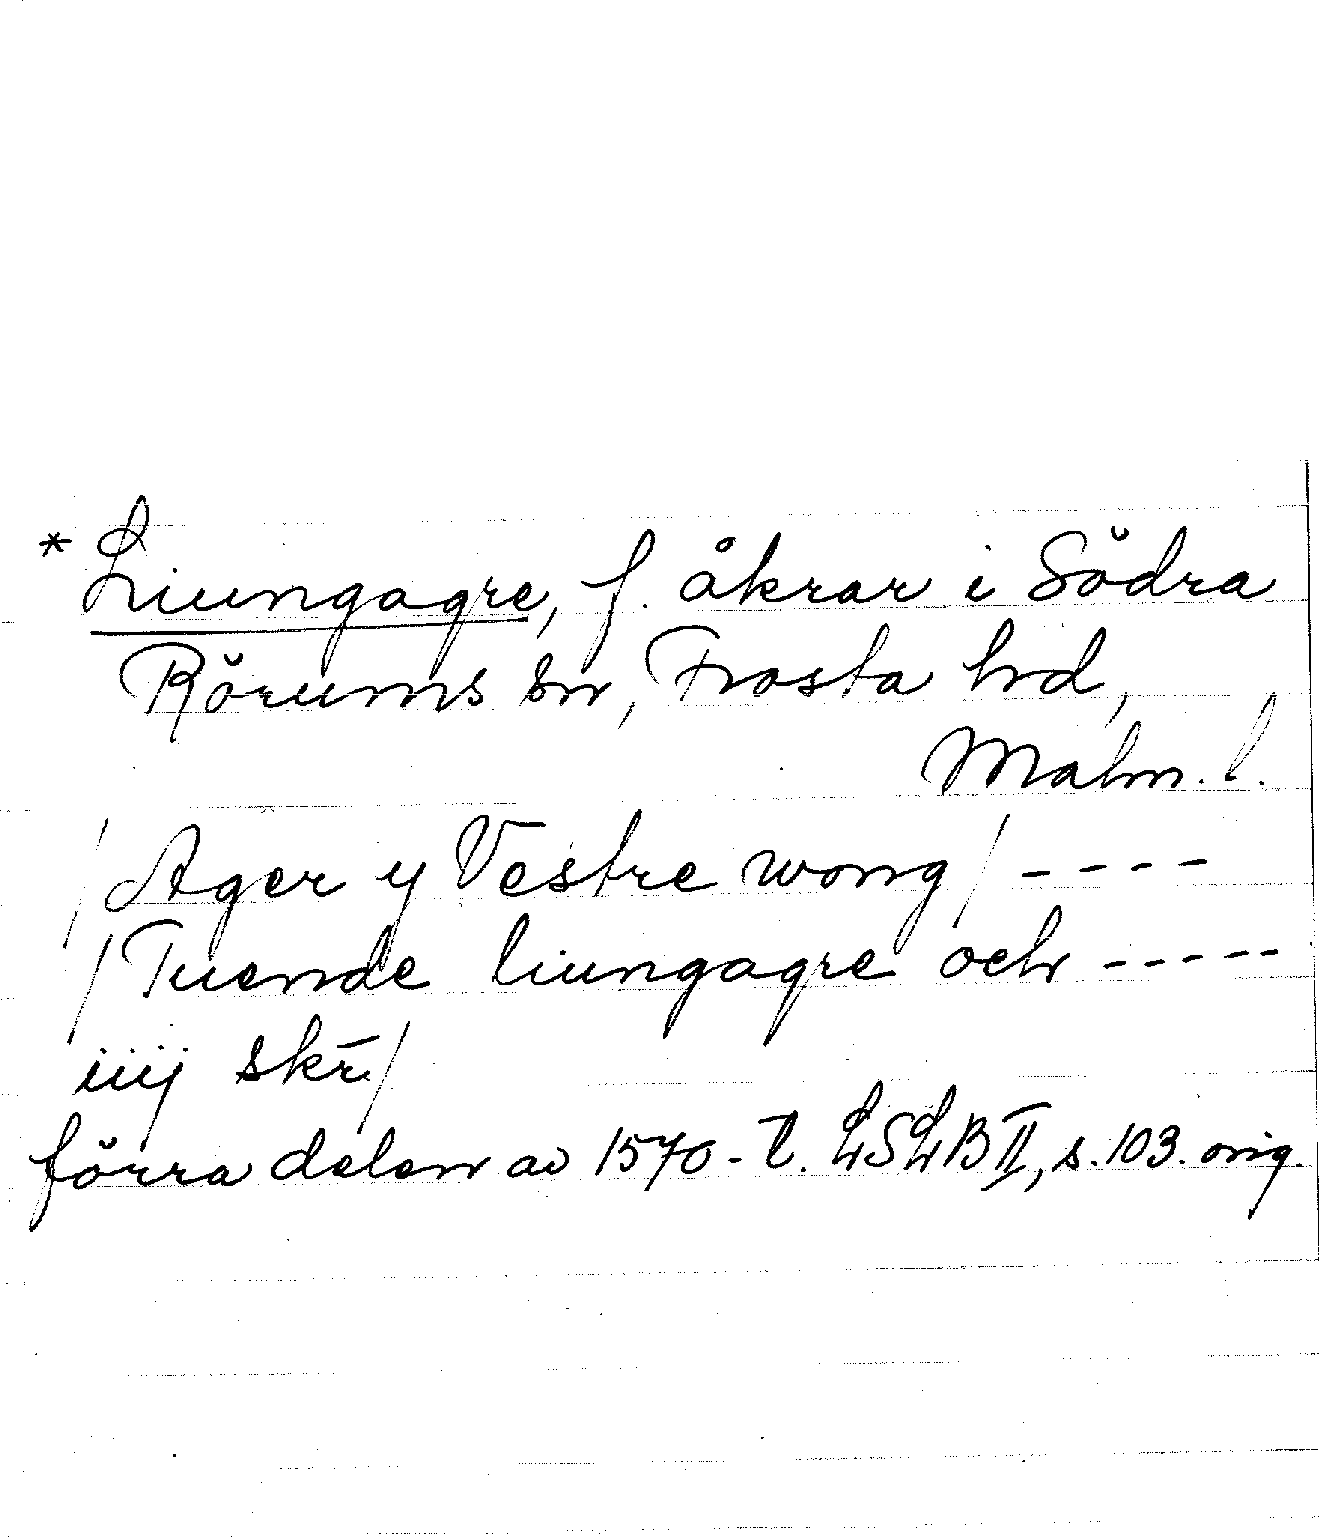 * Liungagre, f. åkrar i Södra
Rörums sn, Frosta hd,
Malm. l.
/Ager y Vestre wong/ ----
/Tuende liungagre och -----
iiij skr̄/
förra delen av 1570-t. LSLB II, s. 103. orig.